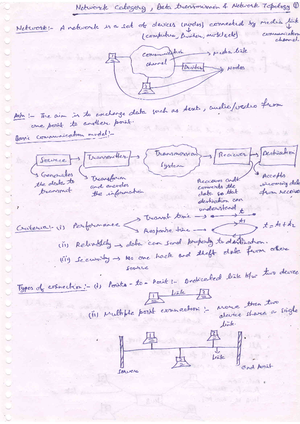 Network Category, Data transmission & Network Topology
Network:- A network is a set of devices (nodes) connected by media link
(computer, printer, mobile etc)
communication channel
Communication channel
Media link
Printer
Nodes
Data :- The aim is to exchange data such as text, audio/video from
one point to another point.
Basic communication model:-
Source
Transmitter
Transmission System
Receiver
Destination
Generates the data to transmit
Transform and encodes the information
Receives and converts the data so that destination can understand
Accepts incoming data from receiver
Criteria :- (i) Performance
Transit time
Response time
t1
t2
t = t1 + t2
(ii) Reliability → data can send properly to destination.
(iii) Security → No one hack and theft data from source
Types of connection :- (i) Point-to-Point :- Dedicated link b/w two device
Link
(ii) Multiple point connection :- more than two
device share a single
link
Link
Source
End point